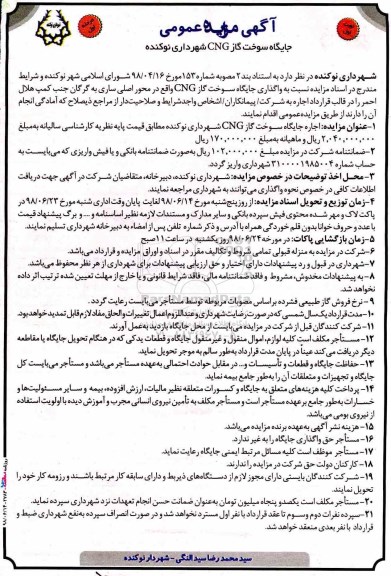 آگهی مزایده عمومی
جایگاه سوخت گاز CNG شهرداری نوکنده
شهرداری نوکنده در نظر دارد به استناد بند ۲ مصوبه شماره ۱۵۳ مورخ ۹۸/۰۴/۱۶ شورای اسلامی شهر نوکنده و شرایط
مندرج در اسناد مزایده نسبت به واگذاری جایگاه سوخت گاز CNG واقع در محور اصلی ساری به گرگان جنب کمپ هلال
احمر را در قالب قرارداد اجاره به شرکت/ پیمانکاران/ اشخاص واجد شرایط و صلاحیت‌دار از مراجع ذیصلاح که آمادگی انجام
آن را دارند از طریق مزایده عمومی اقدام نمایند.
۱-عنوان مزایده: اجاره جایگاه سوخت گاز CNG شهرداری نوکنده مطابق قیمت پایه نظریه کارشناسی سالیانه به مبلغ
۲,۰۴۰,۰۰۰,۰۰۰ ریال و ماهیانه به مبلغ ۱۷۰,۰۰۰,۰۰۰ ریال
۲-ضمانتنامه شرکت در مزایده مبلغ ۱۰۲,۰۰۰,۰۰۰ ریال به صورت ضمانتنامه بانکی و یا فیش واریزی که می‌بایست به
حساب شماره ۳۱۰۰۰۰۱۹۸۵۰۰۴ شهرداری واریز گردد.
۳-محل اخذ توضیحات در خصوص مزایده: شهرداری نوکنده، دبیرخانه، متقاضیان شرکت در آگهی جهت دریافت
اطلاعات کافی در خصوص نحوه واگذاری می‌توانند به شهرداری مراجعه نمایند.
۴-زمان توزیع و تحویل اسناد مزایده: از روز پنجشنبه مورخ ۹۸/۰۶/۱۴ لغایت پایان وقت اداری شنبه مورخ ۹۸/۰۶/۲۳ در
پاکت لاک و مهر شده محتوی فیش سپرده بانکی و سایر مدارک و مستندات لازمه نظیر اساسنامه و ... و برگ پیشنهاد قیمت
با عدد و حروف خوانا بدون قلم خوردگی همراه با آدرس و ذکر شماره تلفن پس از امضاء به دبیرخانه شهرداری تسلیم نمایند.
۵-زمان بازگشایی پاکات: در مورخه ۹۸/۰۶/۲۴ روز یکشنبه در ساعت ۱۱ صبح
۶-شرکت در مزایده به منزله قبولی تمامی شروط و تکالیف مقرر در اسناد و اوراق مزایده و قرارداد می‌باشد.
۷-شهرداری در قبول و رد پیشنهادات دارای اختیار و حق ارزیابی پیشنهادات برای شهرداری از هر نظر محفوظ می‌باشد.
۸-به پیشنهادات مخدوش، مشروط و فاقد ضمانتنامه مالی، فاقد شرایط قانونی و یا خارج از مهلت تعیین شده ترتیب اثر داده
نخواهد شد.
۹-نرخ فروش گاز طبیعی فشرده بر اساس مصوبات مربوطه توسط مستأجر می‌بایست رعایت گردد.
۱۰-مدت قرارداد یک سال شمسی که در صورت رضایت شهرداری و عنداللزوم اعمال تغییرات و الحاق مفاد لازم قابل تمدید خواهد بود.
۱۱-شرکت کنندگان قبل از شرکت در مزایده می‌بایست از محل جایگاه بازدید به عمل آورند.
۱۲-مستأجر مکلف است کلیه لوازم، اموال منقول و غیر منقول جایگاه و قطعات یدکی که در هنگام تحویل جایگاه یا مقاطعه
دیگر دریافت می‌کند عیناً در پایان مدت قرارداد به طور سالم به موجر تحویل نماید.
۱۳-حفاظت جایگاه و قطعات و تأسیسات و... در مقابل حوادث احتمالی به عهده مستأجر می‌باشد و مستأجر می‌بایست کل
جایگاه و تجهیزات و متعلقات آن را به طور جامع بیمه نماید.
۱۴-پرداخت کلیه هزینه‌های متعلق به جایگاه و کسورات متعلقه نظیر مالیات، ارزش افزوده، بیمه و سایر مسئولیت‌ها و
خسارات به طور جامع بر عهده مستأجر است و مستأجر مکلف به تأمین نیروی انسانی مجرب و آموزش دیده با اولویت استفاده
از نیروی بومی می‌باشد.
۱۵-هزینه نشر آگهی به عهده برنده مزایده می‌باشد.
۱۶-مستأجر حق واگذاری جایگاه را به غیر ندارد.
۱۷-مستأجر موظف است کلیه مسائل مرتبط ایمنی جایگاه رعایت نماید.
۱۸-کارکنان دولت حق شرکت در مزایده را ندارند.
۱۹-شرکت کنندگان بایستی دارای مجوز لازم از دستگاه‌های ذیربط و دارای سابقه کار مرتبط باشند و رزومه کار خود را
تحویل نمایند.
۲۰-مستأجر مکلف است یکصد و پنجاه میلیون تومان به عنوان ضمانت حسن انجام تعهدات نزد شهرداری سپرده نماید.
۲۱-سپرده نفرات دوم و سوم تا عقد قرارداد با نفر اول مسترد نخواهد شد و در صورت انصراف سپرده به نفع شهرداری ضبط و
قرارداد با نفر بعدی منعقد خواهد شد.
سید محمد رضا سید النگی - شهردار نوکنده